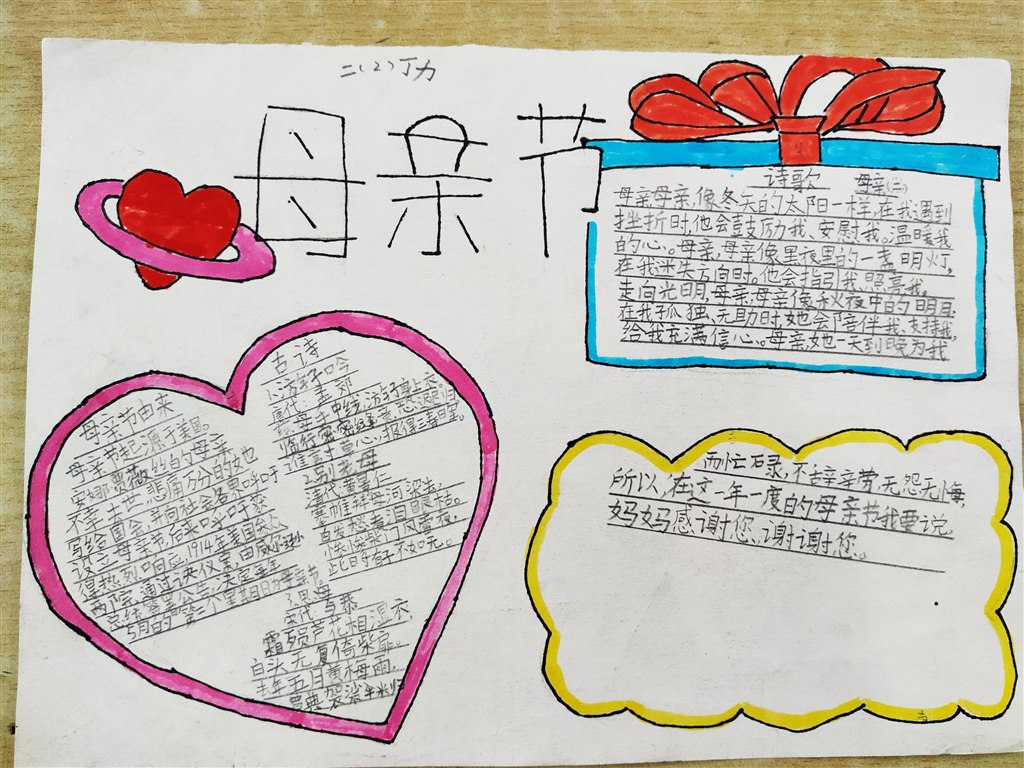 二(2)丁力
母亲节
诗歌 母亲(二)
母亲母亲,像冬天的太阳一样,在我遇到
挫折时,他会鼓励我、安慰我。温暖我
的心。母亲,母亲像黑夜里的一盏明灯,
在我迷失方向时。他会指引我、照亮我。
走向光明,母亲,母亲像秋夜中的明月,
在我孤独、无助时,她会陪伴我、支持我,
给我充满信心。母亲,她一天到晚为我
而忙碌,不辞辛劳、无怨无悔,
所以,在这一年一度的母亲节我要说,
妈妈感谢您、谢谢您。
母亲节由来
母亲节起源于美国。
安娜·贾薇丝的母亲
不幸去世,悲痛万分的她
写给国会,并向社会各界呼吁
设立母亲节,后来呼吁获
得热烈响应 1914年美国参众
两院,通过决议案,由威尔逊
总统签署公告,决定每年
5月的第二个星期日为母亲节
古诗
1、游子吟
唐代、孟郊
慈母手中线,游子身上衣。
临行密密缝,意恐迟迟归
谁言寸草心,报得三春晖。
2、别老母
清代黄景仁
搴帷拜母河梁去,
白发愁看泪眼枯。
惨惨柴门风雪夜,
此时有子不如无。
3、思母
宋代、与恭
霜殒芦花相湿衣,
白头无复倚柴扉。
去年五日黄梅雨,
曾典袈裟籴米归